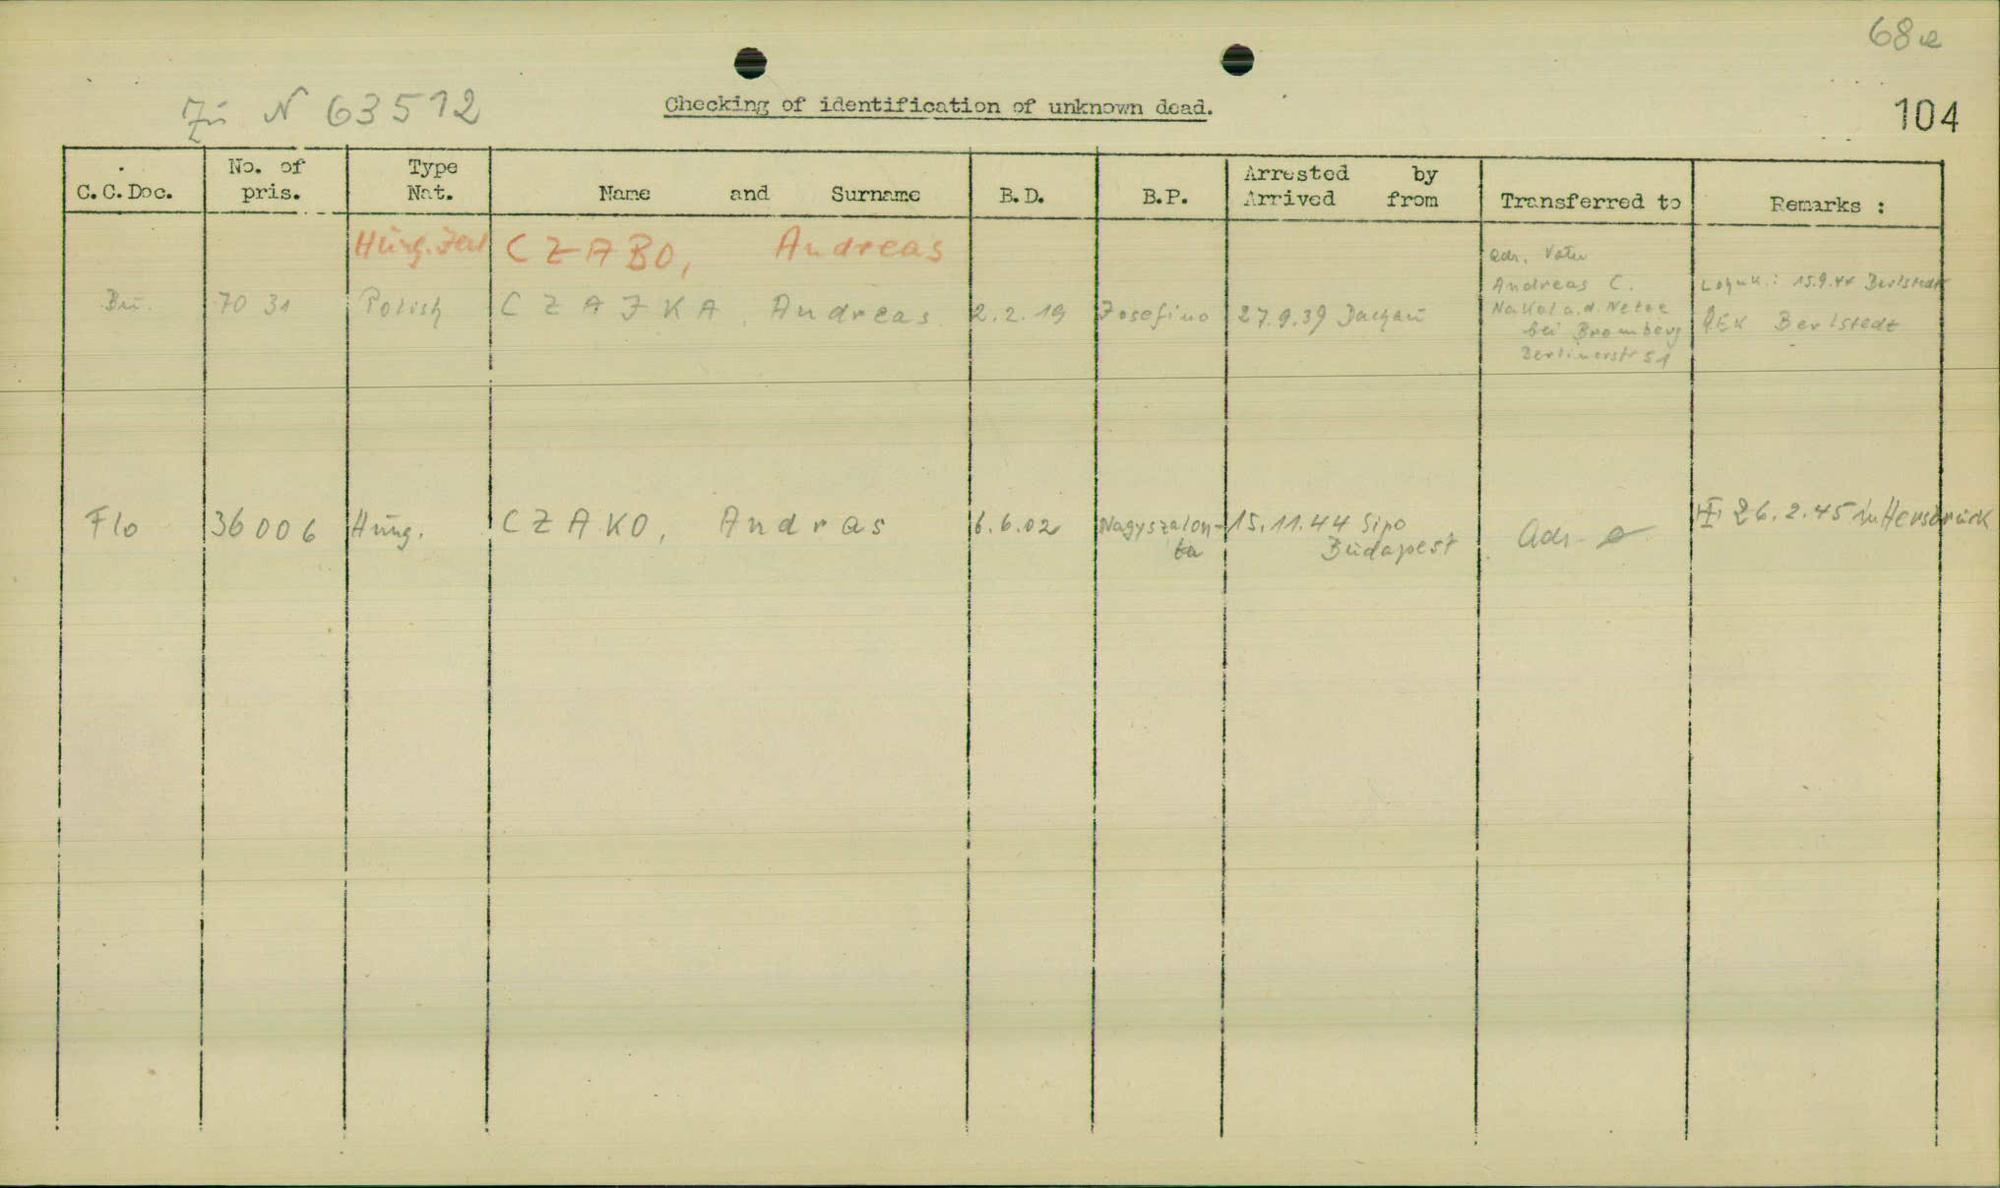 68a
Zu N 63512
Checking of identification of unknown dead.
104
C.C.Doc.
No. of pris.
Type Nat.
Name and Surname
B.D.
B.P.
Arrested by
Arrived from
Transferred to
Remarks :
Hung. CZABO, Andreas
Bu. 7031 Polish CZAJKA, Andreas 2.2.19 Josefino 27.9.39 Dachau
Adr. Vater
Andreas C.
Nakel a.d. Netze
bei Bromberg
Berlinerstr 51
15.9.44 Berlstedt
Berlstedt
Flo 36006 Hung. CZAKO, Andras 6.6.02 Nagyszalon-
ta
15.11.44 Sipo
Budapest
Adr.
26.2.45 in Hersbruck